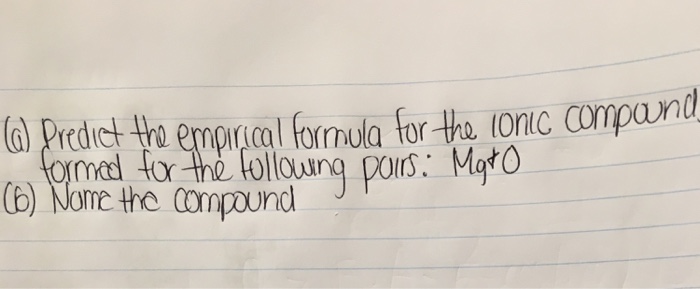 (a) Predict the empirical formula for the ionic compound
formed for the following pairs: Mg+O
(b) Name the compound